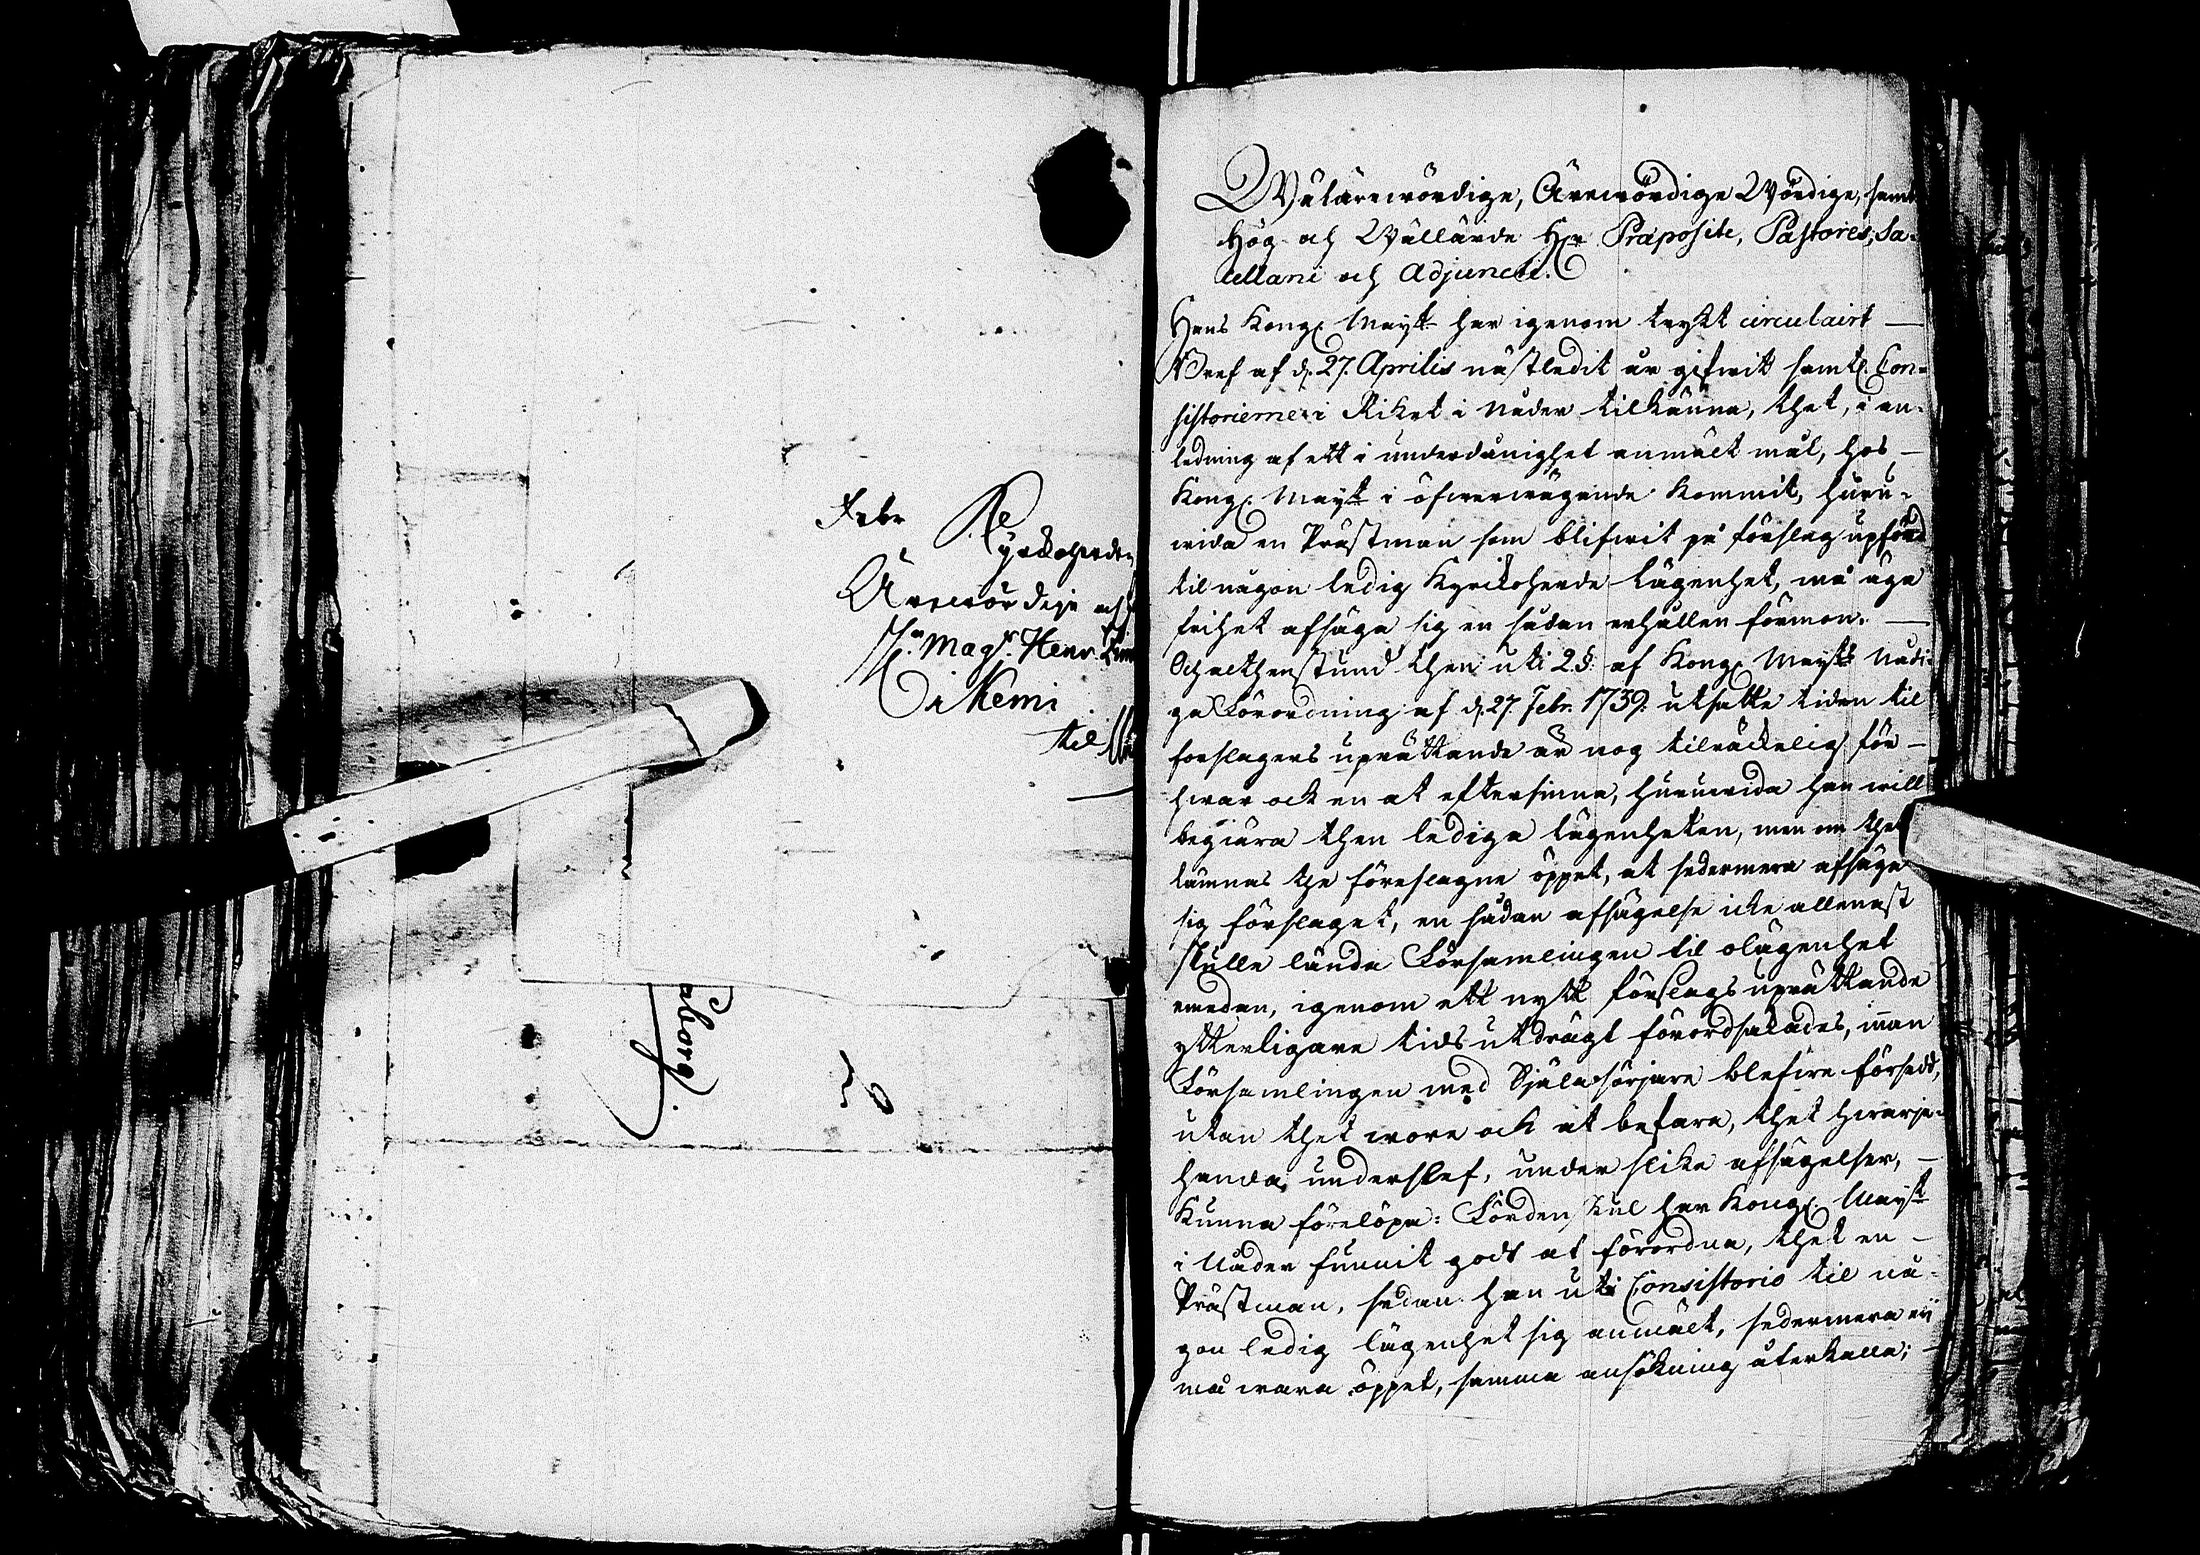 Kyrckoherden
Ärewördige och
Hr Magr. Henr.
i Kemi
til
aborg.
Wälärewördige, Ärewördige Wördige, samt
Hög- och Wällärde Hrr Præpositi, Pastores, Sa-
cellani och Adjuncti.
Hans Kongl. Mayt har igenom trykt circulairt
Bref af d. 27. Aprilis nästledit år gifwit samtl. Con-
sistorierne i Riket i Nåder tilkänna, thet, i an-
ledning af ett i underdånighet anmält mål, hos
Kongl. Mayt i öfwerwägande kommit, huru-
wida en Prästman som blifwit på förslag upförd
til någon ledig Kyrckoherde lägenhet, må äga
frihet afsäga sig en sådan erhållen förmon.
Och althenstund then uti 2 §. af Kongl. Mayts Nådi-
ga Förordning af d. 27. Febr. 1739. utsatte tiden til
forslagers uprättande är nog tilräckelig för
hwar och en at eftersinna, huruwida han will
begiära then lediga lägenheten, men om thet
lämnas the föreslagne öppet, at sedermera afsäga
sig förslaget, en sådan afsägelse icke allenast
skulle lända Församlingen til olägenhet
emedan, igenom ett nytt förslags uprättande
ytterligare tids utdrägt förordsakades, innan
Församlingen med Själasörjare blefwe försedd,
utan thet wore och at befara, thet hwarje-
handa underslef, under slika afsägelser,
kunna förelöpa: Fördenskul har Kongl. Mayt
i Nåder funnit godt at förordna, thet en
Prästman, sedan han uti Consistorio til nå-
gon ledig lägenhet sig anmält, sedermera eij
må wara öppet, samma ansökning återkalla;